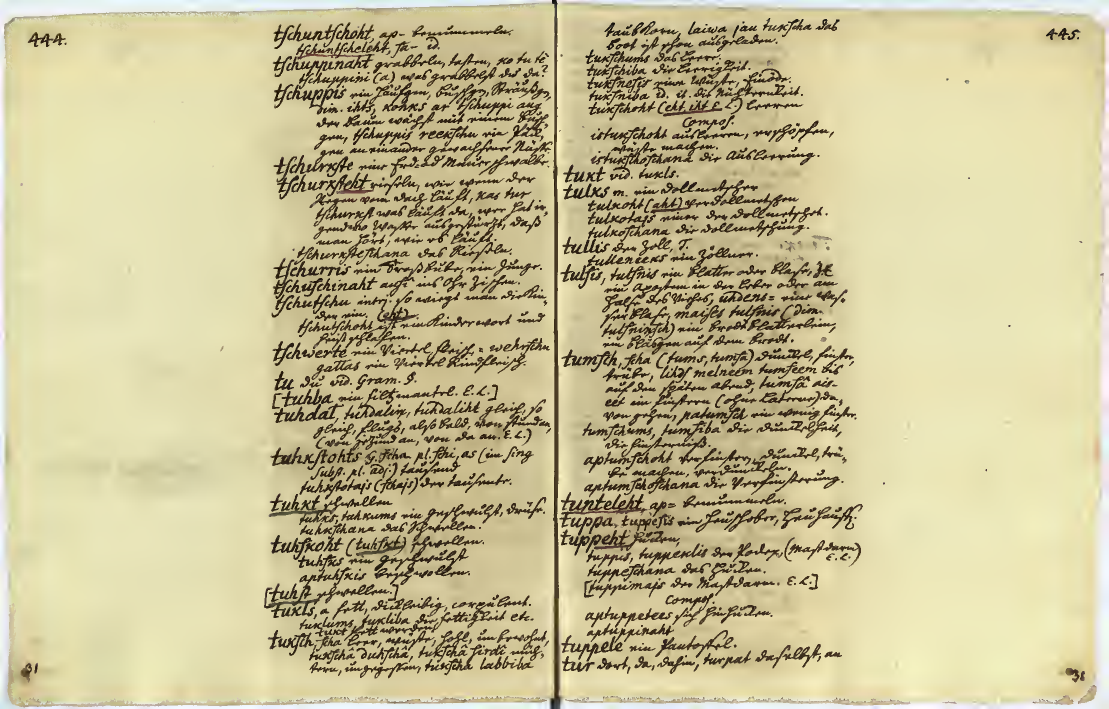 444.
tſchuntſchoht, ap- benummeln.
tſchuntſcheleht, ſa- id.
tſchuppinaht grabbeln, taſten, ko tu tê
tſchuppini (a) was grabbelſt du da?
tſchuppis ein Häufgen, Buſchgen, Sträußgen,
dim. ihts, kohks ar tſchuppi aug
der Baum wächſt mit einem Buſch-
gen, tſchuppis reekſchu ein
gen an einander gewachſener Nüſſe.
tſchurkſte eine Erd- od Mauerſchwalbe.
tſchurkſteht rieſeln, wie wenn der
Regen vom Dach läuft, kas tur
tſchurkſt was läuft da, wer hat ir-
gendwo Waſſer ausgeſtürtzt, daß
man hört, wie es läuft.
tſchurkſteſchana das Rieſeln.
tſchurris ein Großbube, ein Junge.
tſchuſchinaht auſſi ins Ohr ziſchen.
tſchutſchu intrj. ſo wiegt man die Kin-
der ein. (eht)
tſchutſchoht iſt ein Kinderwort und
heiſt ſchlafen.
tſchwerte ein Viertel Fleiſch, = wehrſchu
gallas ein Viertel Rindfleiſch.
tu du vid. Gram. §.
[tuhba ein Filtzmantel. E.L.]
tuhdal tuhdalin, tuhdaliht gleich, ſo
gleich, flugs, alſobald, von ſtund an,
(von ſtund an, von da an. E.L.)
tuhkſtohts G. ſcha pl. ſchi, as (im ſing
ſubſt. pl. adj.) tauſend
tuhkſtotajs (ſchajs) der tauſente.
tuhkt ſchwellen
tuhks, tuhkums ein geſchwulſt, drüſe.
tuhkſchana das Schwellen.
tuhſkoht (tuhſkt) ſchwellen.
tuhſkis ein geſchwulſt
aptuhſkis beſchwollen.
[tuhſt ſchwellen.]
tukls, a fett, dickleibig, corpulent.
tuklums, tukliba die Fettigkeit etc.
tukt fett werden
tukſch, ſcha leer, wüſte, hohl, unbewohnt,
tukſchâ duhſchâ, tukſchâ ſirdi nüch-
tern, ungegeſſen, tukſcha labbiba
31
445.
taubKorn, laiwa jau tukſcha das
Boot iſt ſchon ausgeladen.
tukſchums das Leere.
tukſchiba die Leerigkeit.
tukſneſis eine Wüſte, Einöde.
tukſniba id. it. die Nüchternkeit.
tukſchoht (eht. iht E.L.) leeren
Compoſ.
istukſchoht ausleeren, erſchöpfen,
wüſte machen.
istukſchoſchana die Ausleerung.
tukt vid. tukls.
tulks m. ein Dollmetſcher
tulkoht (aht) verdollmetſchen
tulkotajs einer der dollmetſchet.
tulkoſchana die Dollmetſchung.
tullis der Zoll, T.
tulleneeks ein Zöllner.
tulſis, tulſnis ein Blatter oder Blaſe, It
ein Apoſtem in der Leber oder am
Halſe des Viehes, uhdens = eine Waſ-
ſerblaſe, maiſes tulſnis (dim.
tulſninſch) ein Brodtblätterlein,
ein Bläſgen auf dem Brodt.
tumſch, ſcha (tums, tumſa) dunkel, finſter,
trübe, lihdſ melneem tumſeem bis
auf den ſpäten abend, tumſâ ais-
eet im finſtern (ohne Laterne) da-
von gehen, patumſch ein wenig finſter.
tumſchums, tumſiba die Dunkelheit,
die Finſterniß.
aptumſchoht verfinſtern, dunkel, trü-
be machen, verdunkeln.
aptumſchoſchana die Verfinſterung.
tunteleht, ap= benummeln.
tuppa, tuppeſis ein Heuſchober, Heuhauffe.
tuppeht hucken,
tuppis, tuppeklis der Podex, (Maſtdarm)
E.L.)
tuppeſchana das Hucken.
[tuppimajs der Maſtdarm. E.L.]
Compoſ.
aptuppetees ſich hinhucken.
aptuppinaht
tuppele ein Pantoffel.
tur dort, da, dahin, turpat daſelbſt, an